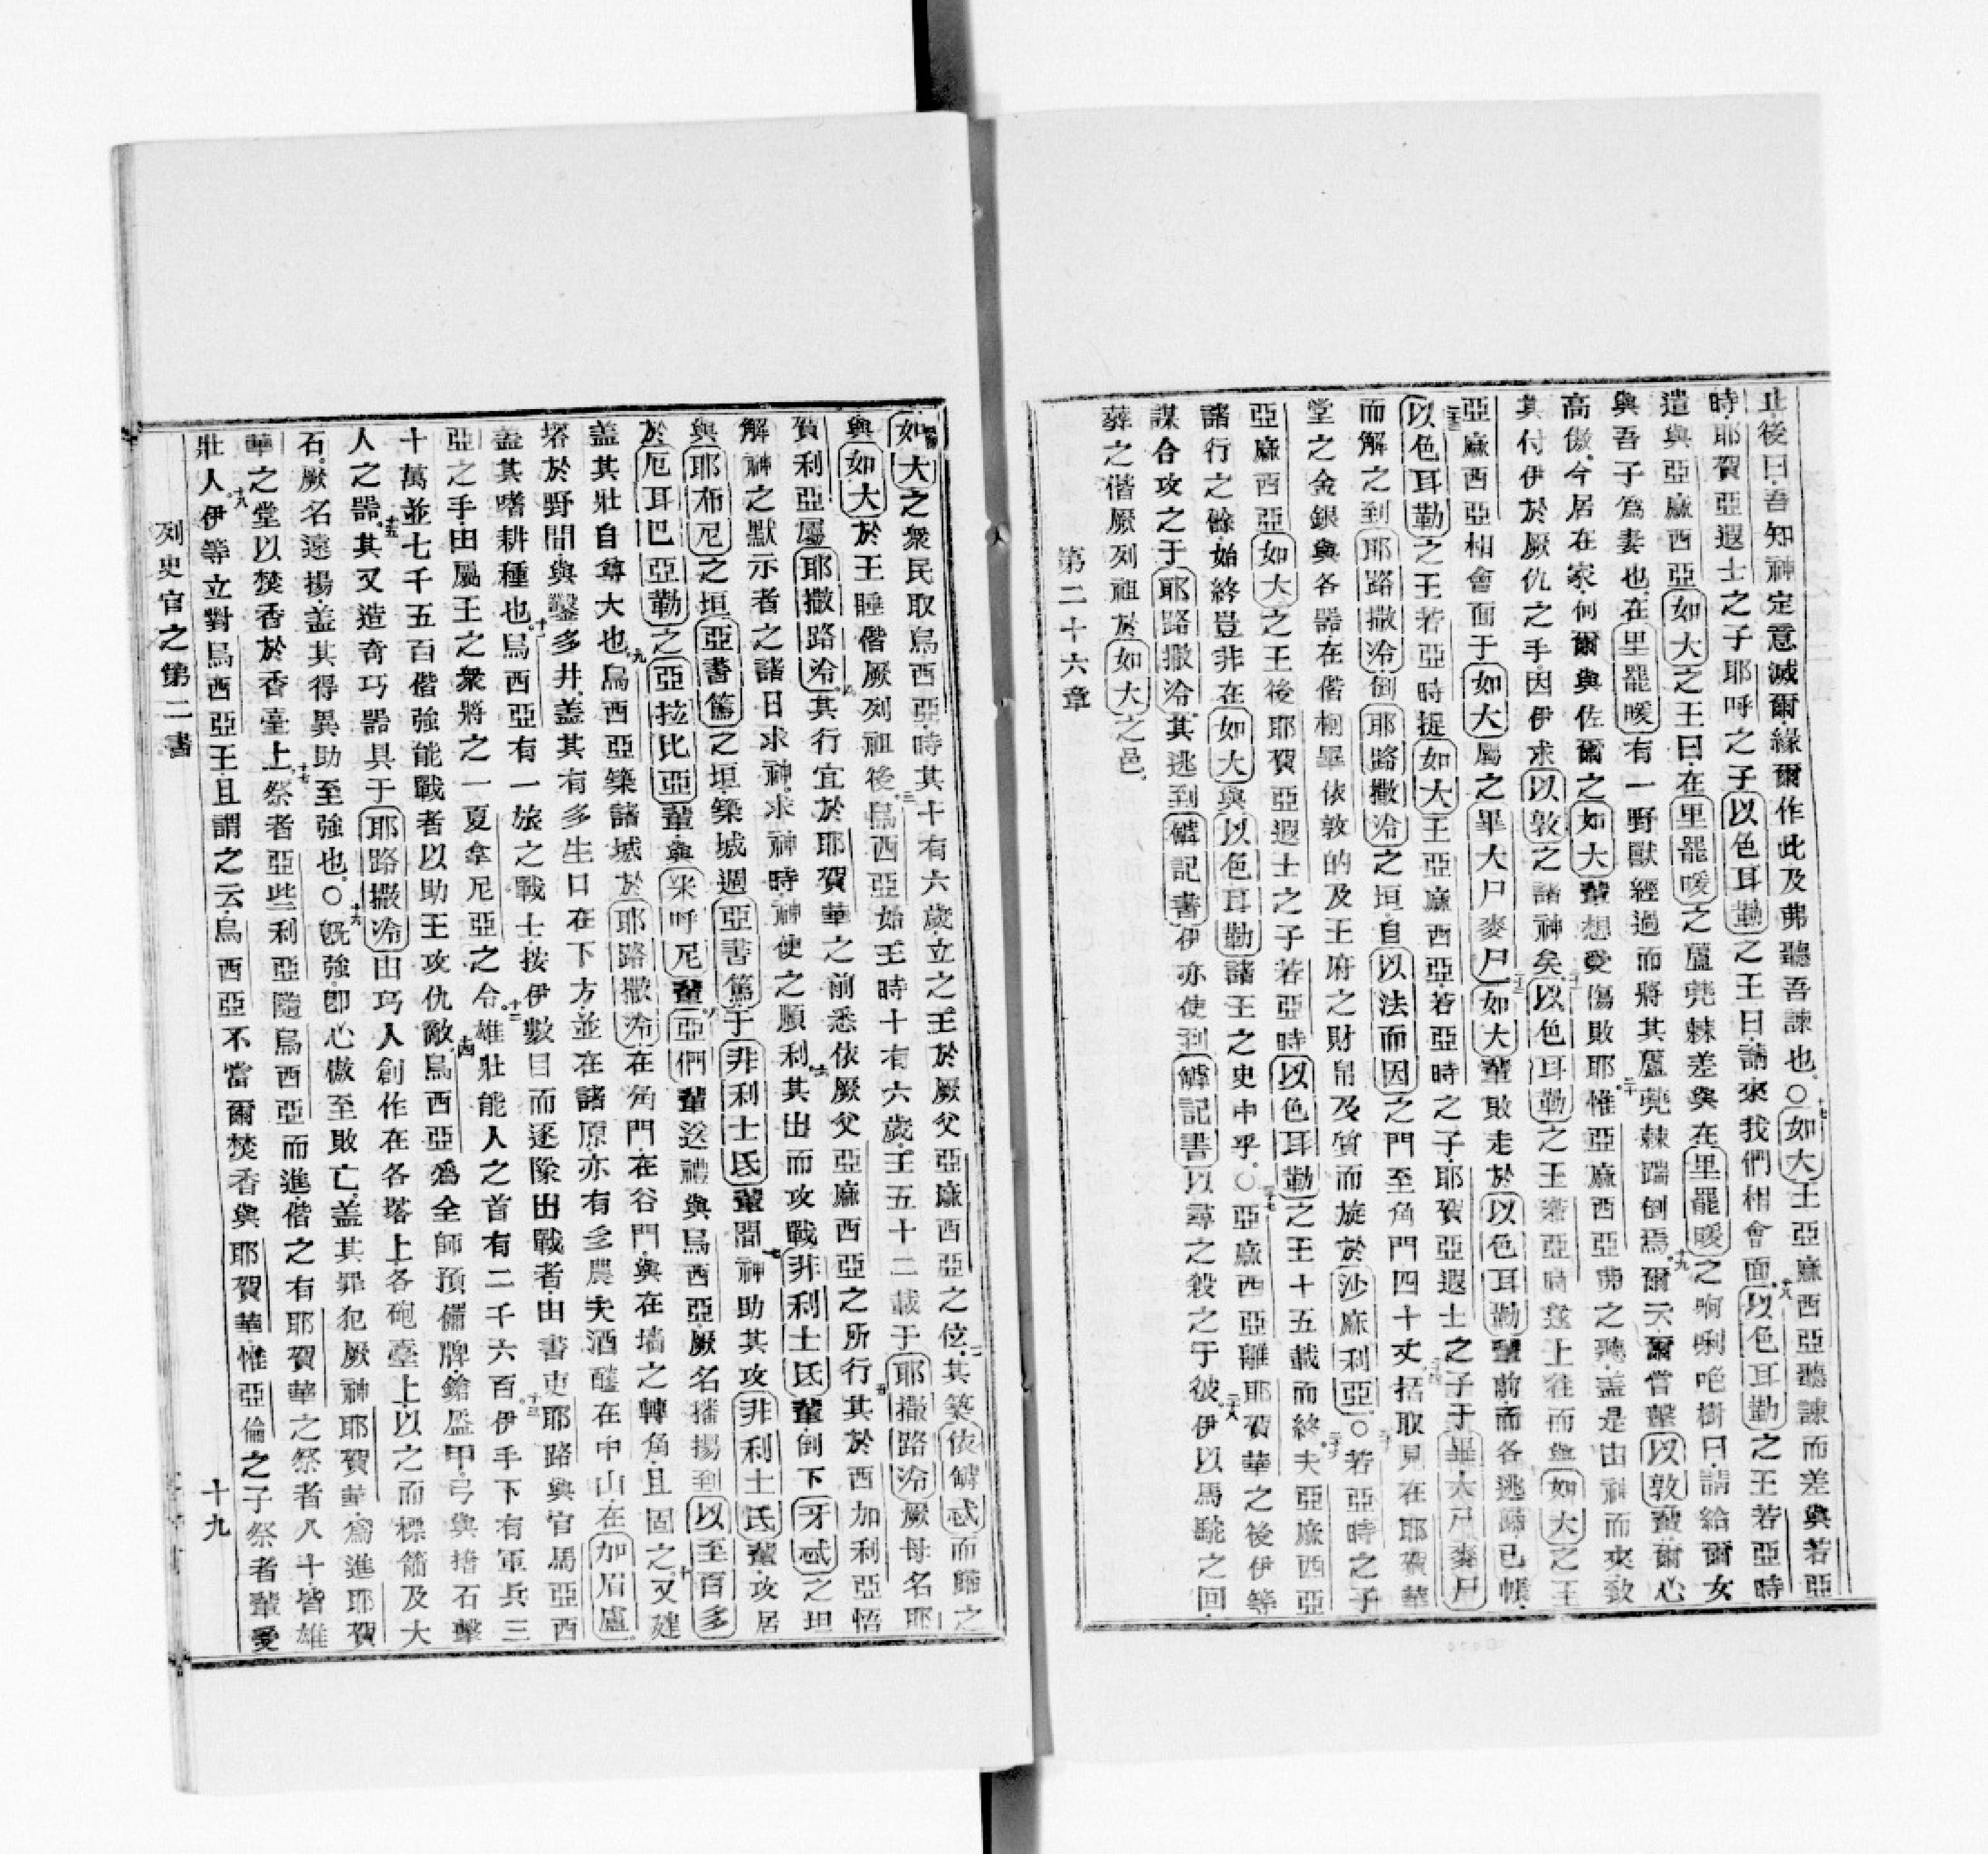 止後曰吾知神定意滅爾緣爾作此及弗聽吾諫也○十七如大王亞麻西亞聽諫而差與若亞
時耶賀亞遐士之子耶呼之子以色耳勒之王曰請來我們相會面十八以色耳勒之王若亞時
遣與亞麻西亞如大之王曰在里罷暖之蘆蔸棘差與在里罷暖之啊唎吧樹曰請給爾女
與吾子為妻也在里罷暖有一野獸經過而將其蘆蔸棘踹倒焉十九爾云爾嘗擊以敦輩爾心
高傲今居在家何爾與佐爾之如大輩想受傷敗耶二十惟亞麻西亞弗之聽蓋是由神而來致
其付伊於厥仇之手因伊求以敦之諸神矣二十一以色耳勒之王若亞時遂上往而與如大之王
亞麻西亞相會面于如大屬之畢大尸麥尸二十二如大輩敗走於以色耳勒輩前而各逃歸已帳
二十三以色耳勒之王若亞時捉如大王亞麻西亞若亞時之子耶賀亞遐士之子于畢大尸麥尸
而解之到耶路撒冷倒耶路撒冷之垣自以法而因之門至角門四十丈二十四括取見在耶賀華
堂之金銀與各器在偕柯畢依敦的及王府之財帛及質而旋於沙麻利亞○二十五若亞時之子
亞麻西亞如大之王後耶賀亞遐士之子若亞時以色耳勒之王十五載而終二十六夫亞麻西亞
諸行之餘始終豈非在如大與以色耳勒諸王之史中乎○二十七亞麻西亞離耶賀華之後伊等
謀合攻之于耶路撒冷其逃到𪉹記書伊亦使到𪉹記書以尋之殺之于彼二十八伊以馬駝之回
葬之偕厥列祖於如大之邑
第二十六章
如大之衆民取烏西亞時其十有六歲立之王於厥父亞麻西亞之位二其築依𪉹忒而歸之
與如大於王睡偕厥列祖後三烏西亞始王時十有六歲王五十二載于耶撒路冷厥母名耶
賀利亞屬耶撒路冷四其行宜於耶賀華之前悉依厥父亞麻西亞之所行五其於西加利亞悟
解神之默示者之諸日求神求神時神使之順利六其出而攻戰非利士氐輩倒下牙忒之垣
與耶布尼之垣亞書篤之垣築城週亞書篤于非利士氐輩間七神助其攻非利士氐輩攻居
於厄耳巴亞勒之亞拉比亞輩與米呼尼輩八亞們輩送禮與烏西亞厥名播揚到以至百多
蓋其壯自尊大也九烏西亞築諸城於耶路撒冷在角門在谷門與在墻之轉角且固之十又建
塔於野間與鑿多井蓋其有多生口在下方並在諸原亦有多農夫酒醝在中山在加眉盧
蓋其嗜耕種也十一烏西亞有一旅之戰士按伊數目而逐隊出戰者由書吏耶路與官馬亞西
亞之手由屬王之衆將之一夏拿尼亞之令十二雄壯能人之首有二千六百十三伊手下有軍兵三
十萬並七千五百偕強能戰者以助王攻仇敵十四烏西亞為全師預備牌鎗盔甲弓與擔石擊
人之器十五其又造奇巧器具于耶路撒冷由巧人創作在各塔上各砲臺上以之而標箭及大
石厥名遠揚蓋其得異助至強也○十六旣強卽心傲至敗亡蓋其罪犯厥神耶賀華為進耶賀
華之堂以焚香於香臺上十七祭者亞些利亞隨烏西亞而進偕之有耶賀華之祭者八十皆雄
壯人十八伊等立對烏西亞王且謂之云烏西亞不當爾焚香與耶賀華惟亞倫之子祭者輩愛
列史官之第二書 十九